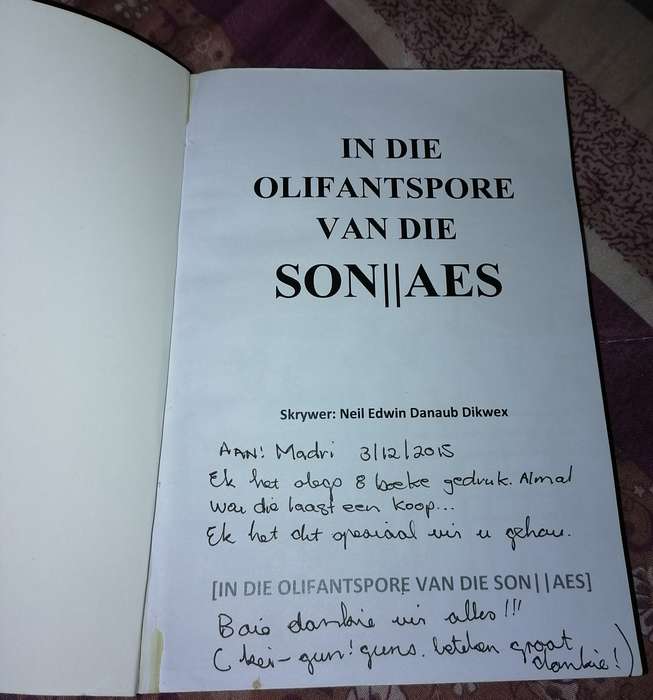 IN DIE
OLIFANTSPORE
VAN DIE
SON||AES
Skrywer: Neil Edwin Danaub Dikwex
AAN! Madri 3/12/2015
Ek het 8 boeke gedruk. Almal
die laast een koop...
Ek het dit spesiaal vir u gehou.
[IN DIE OLIFANTSPORE VAN DIE SON||AES]
Baie dankie vir alles!!!
(kei-gun!guns. beteken groot
dankie!)